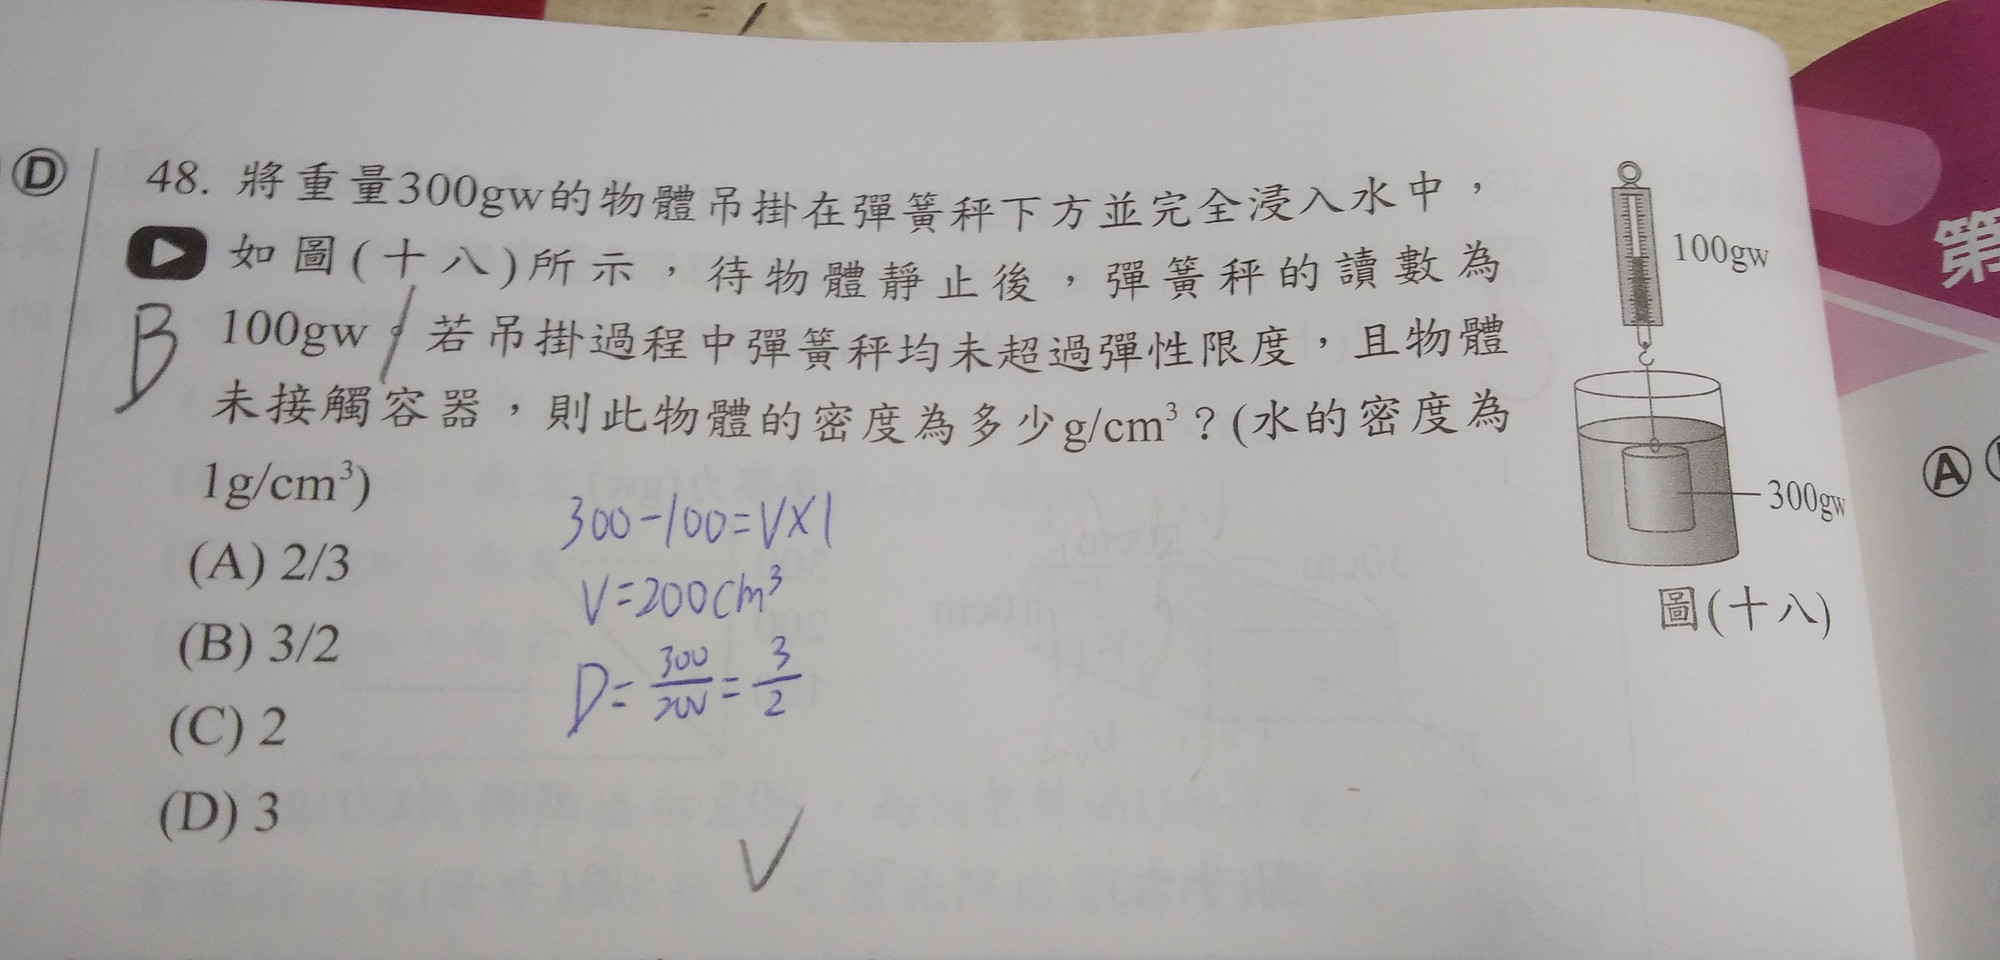 D
48. 將重量300gw的物體吊掛在彈簧秤下方並完全浸入水中，
如圖(十八)所示，待物體靜止後，彈簧秤的讀數為
B
100gw，若吊掛過程中彈簧秤均未超過彈性限度，且物體
未接觸容器，則此物體的密度為多少g/cm³？(水的密度為
1g/cm³)
(A) 2/3
(B) 3/2
(C) 2
(D) 3
300-100=V×1
V=200cm³
D=300/200=3/2
100gw
300gw
圖(十八)
第
A